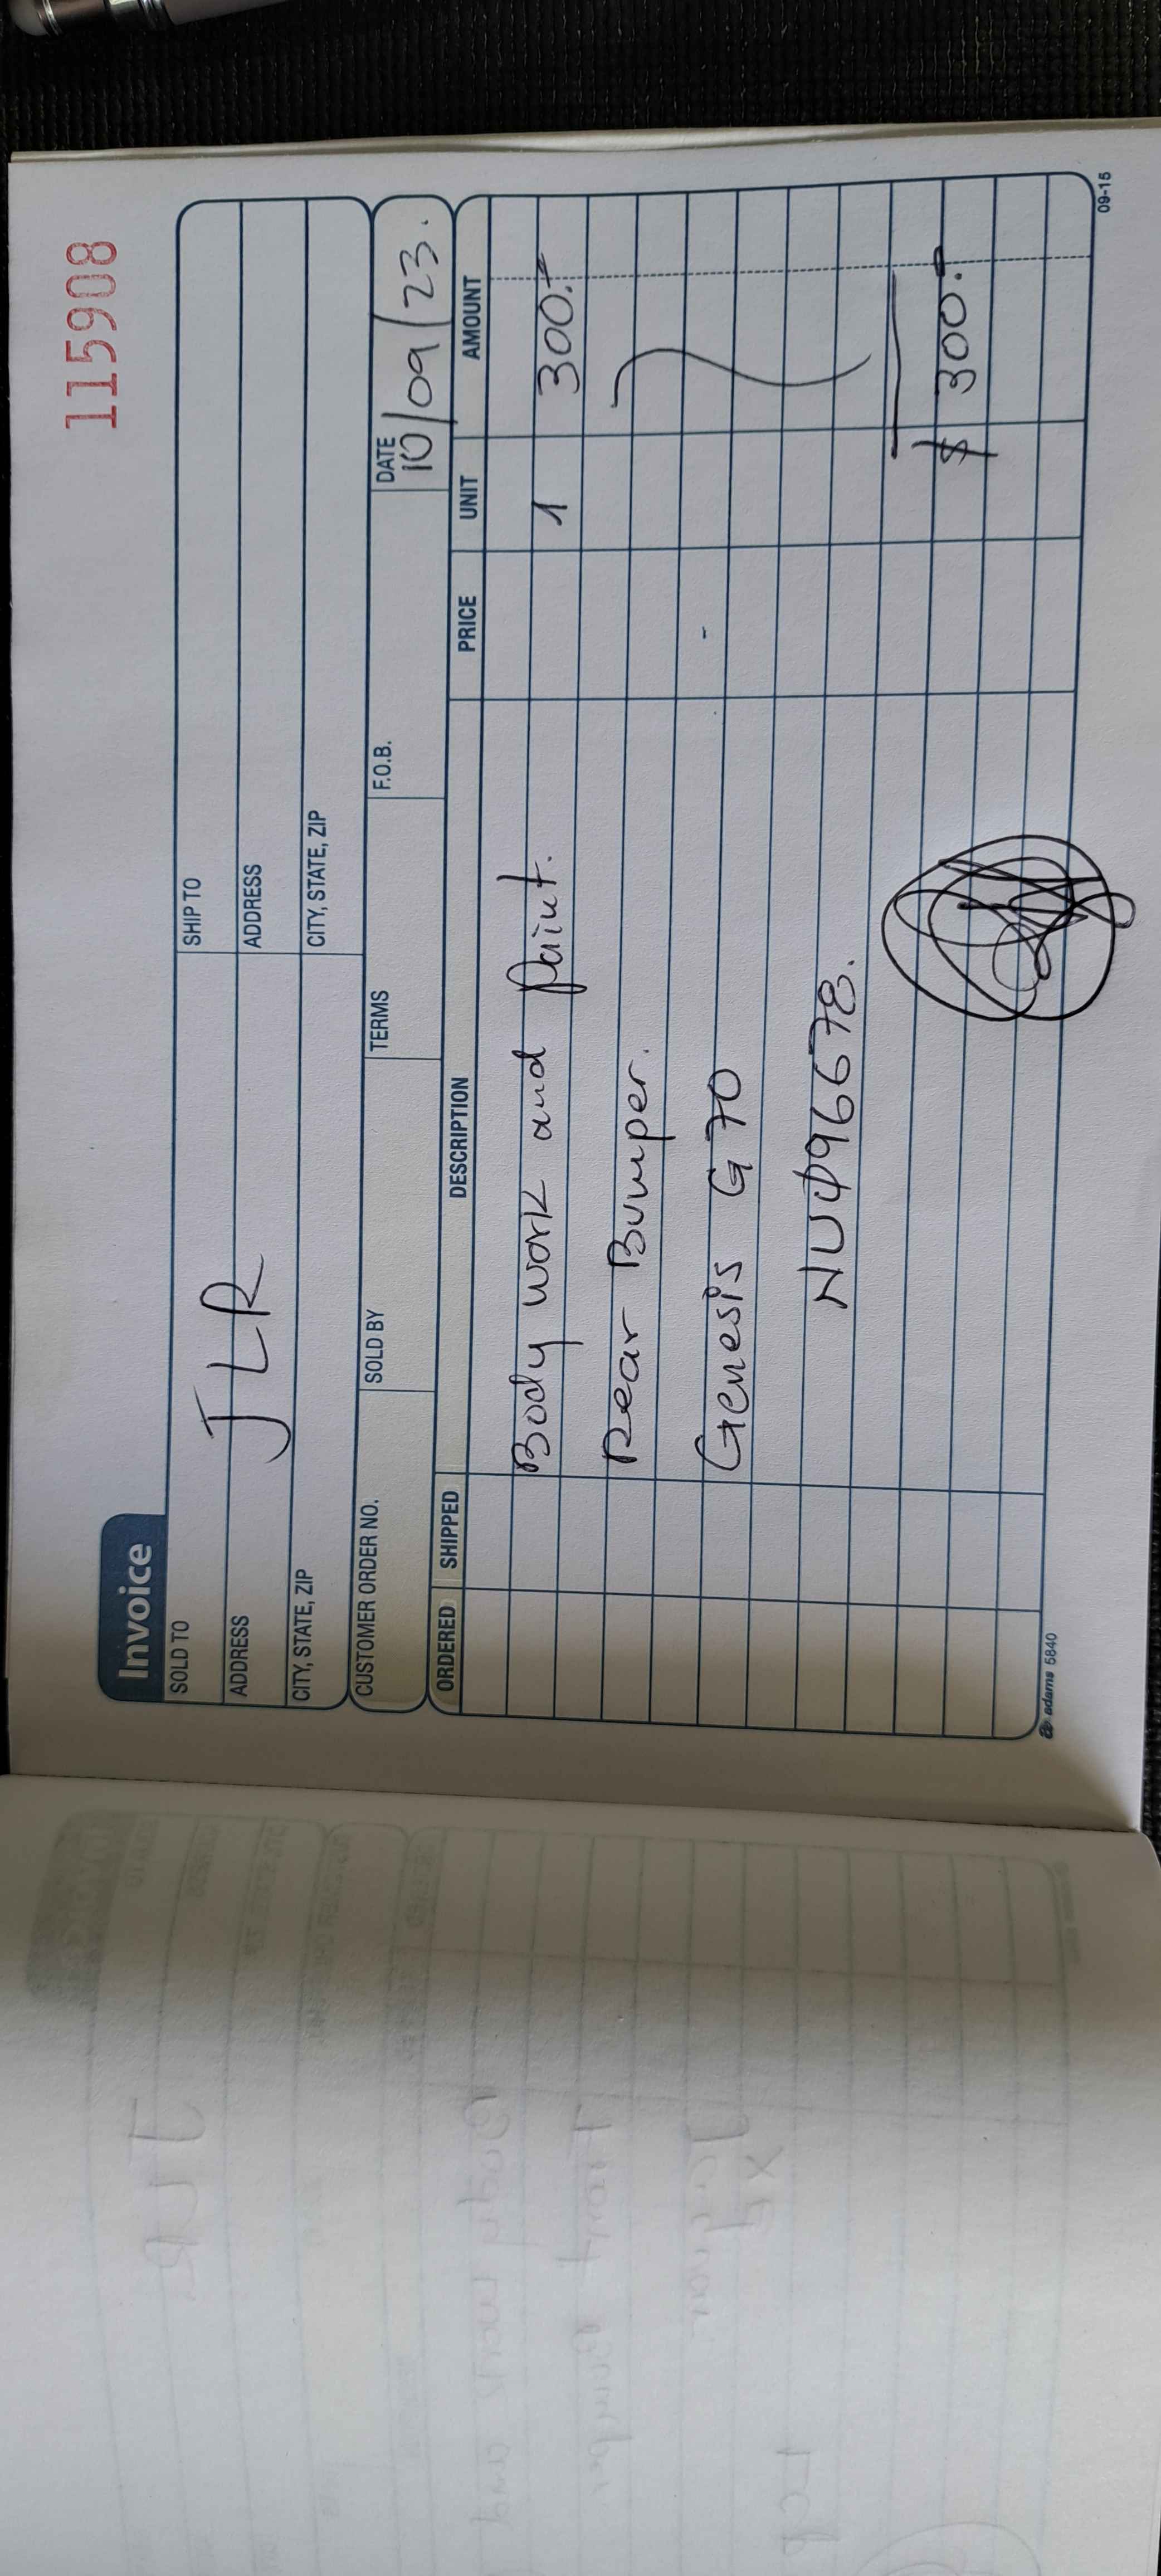 115908
Invoice
SOLD TO JLR SHIP TO
ADDRESS ADDRESS
CITY, STATE, ZIP CITY, STATE, ZIP
CUSTOMER ORDER NO. SOLD BY TERMS F.O.B. DATE 10/09/23.
ORDERED SHIPPED DESCRIPTION PRICE UNIT AMOUNT
Body work and paint. 1 300.-
Rear Bumper.
Genesis G70
NU096678.
$ 300.-
adams 5840 09-15